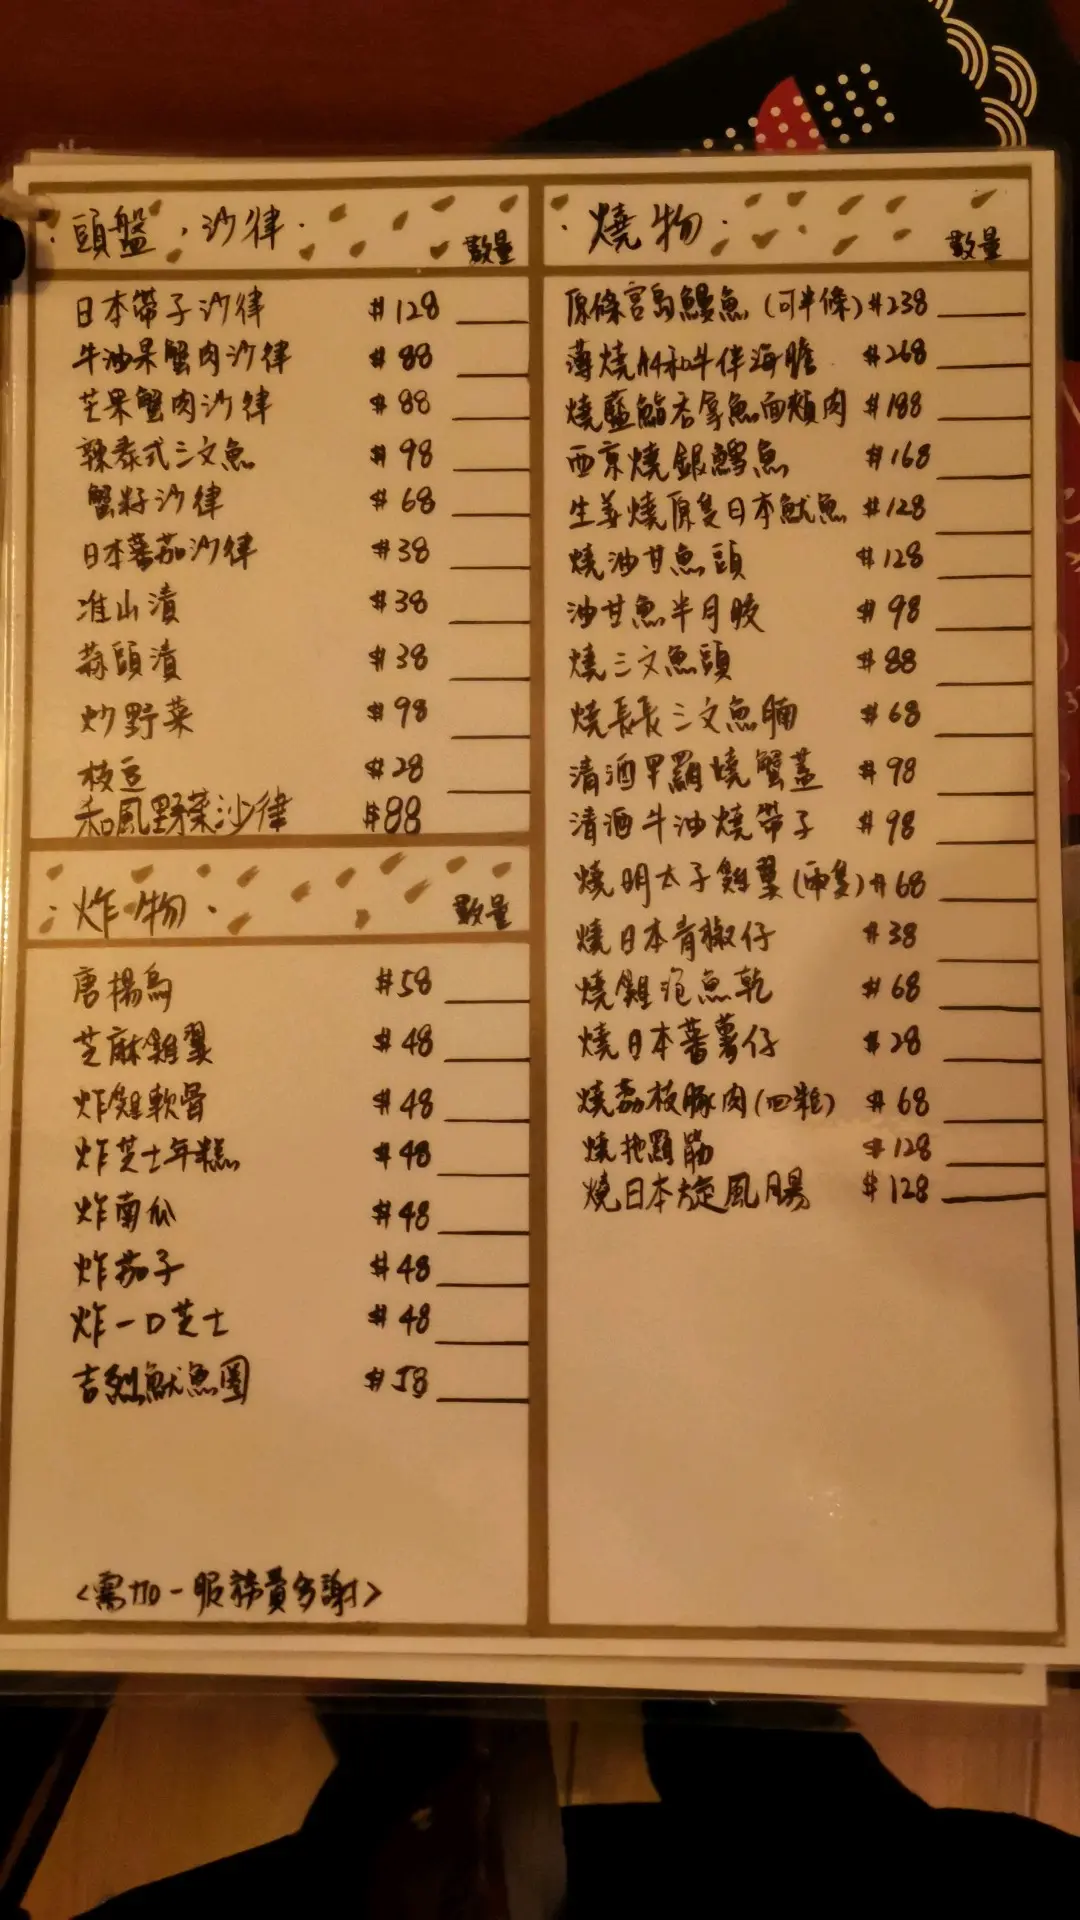 頭盤・沙律・ 數量
日本帶子沙律 $128
牛油果蟹肉沙律 $88
芒果蟹肉沙律 $88
辣泰式三文魚 $98
蟹籽沙律 $68
日本蕃茄沙律 $38
准山漬 $38
蒜頭漬 $38
炒野菜 $98
枝豆 $28
和風野菜沙律 $88
・炸物・ 數量
唐楊鳥 $58
芝麻雞翼 $48
炸雞軟骨 $48
炸芝士年糕 $48
炸南瓜 $48
炸茄子 $48
炸一口芝士 $48
吉列魷魚圈 $58
<需加一服務費多謝>
・燒物・ 數量
原條宮島鰻魚(可半條) $238
薄燒A4和牛伴海膽 $268
燒藍鮨吞拿魚面頰肉 $188
西京燒銀鱈魚 $168
生姜燒原隻日本魷魚 $128
燒油甘魚頭 $128
油甘魚半月鮫 $98
燒三文魚頭 $88
燒長長三文魚腩 $68
清酒甲羅燒蟹蓋 $98
清酒牛油燒帶子 $98
燒明太子雞翼(兩隻) $68
燒日本青椒仔 $38
燒雞泡魚乾 $68
燒日本蕃薯仔 $28
燒荔枝豚肉(四粒) $68
燒牠顎筋 $128
燒日本旋風腸 $128